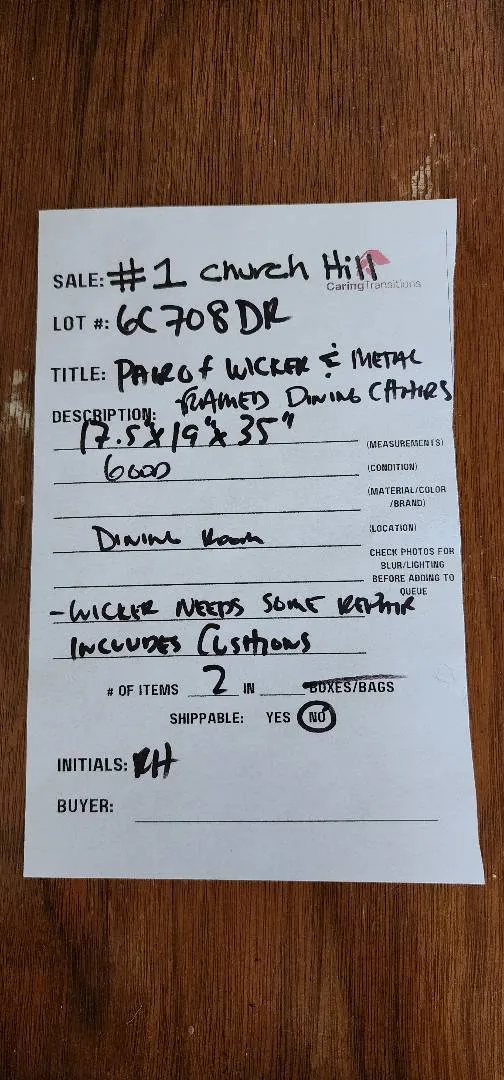 SALE: #1 Church Hill
CaringTransitions
LOT #: 6C708DR
TITLE: PAIR OF WICKER & METAL
FRAMED DINING CHAIRS
DESCRIPTION:
17.5"X19"X35"
(MEASUREMENTS)
GOOD
(CONDITION)
(MATERIAL/COLOR
/BRAND)
DINING ROOM
(LOCATION)
CHECK PHOTOS FOR
BLUR/LIGHTING
BEFORE ADDING TO
QUEUE
- WICKER NEEDS SOME REPAIR
INCLUDES CUSHIONS
# OF ITEMS 2 IN BOXES/BAGS
SHIPPABLE: YES NO
INITIALS: RH
BUYER: